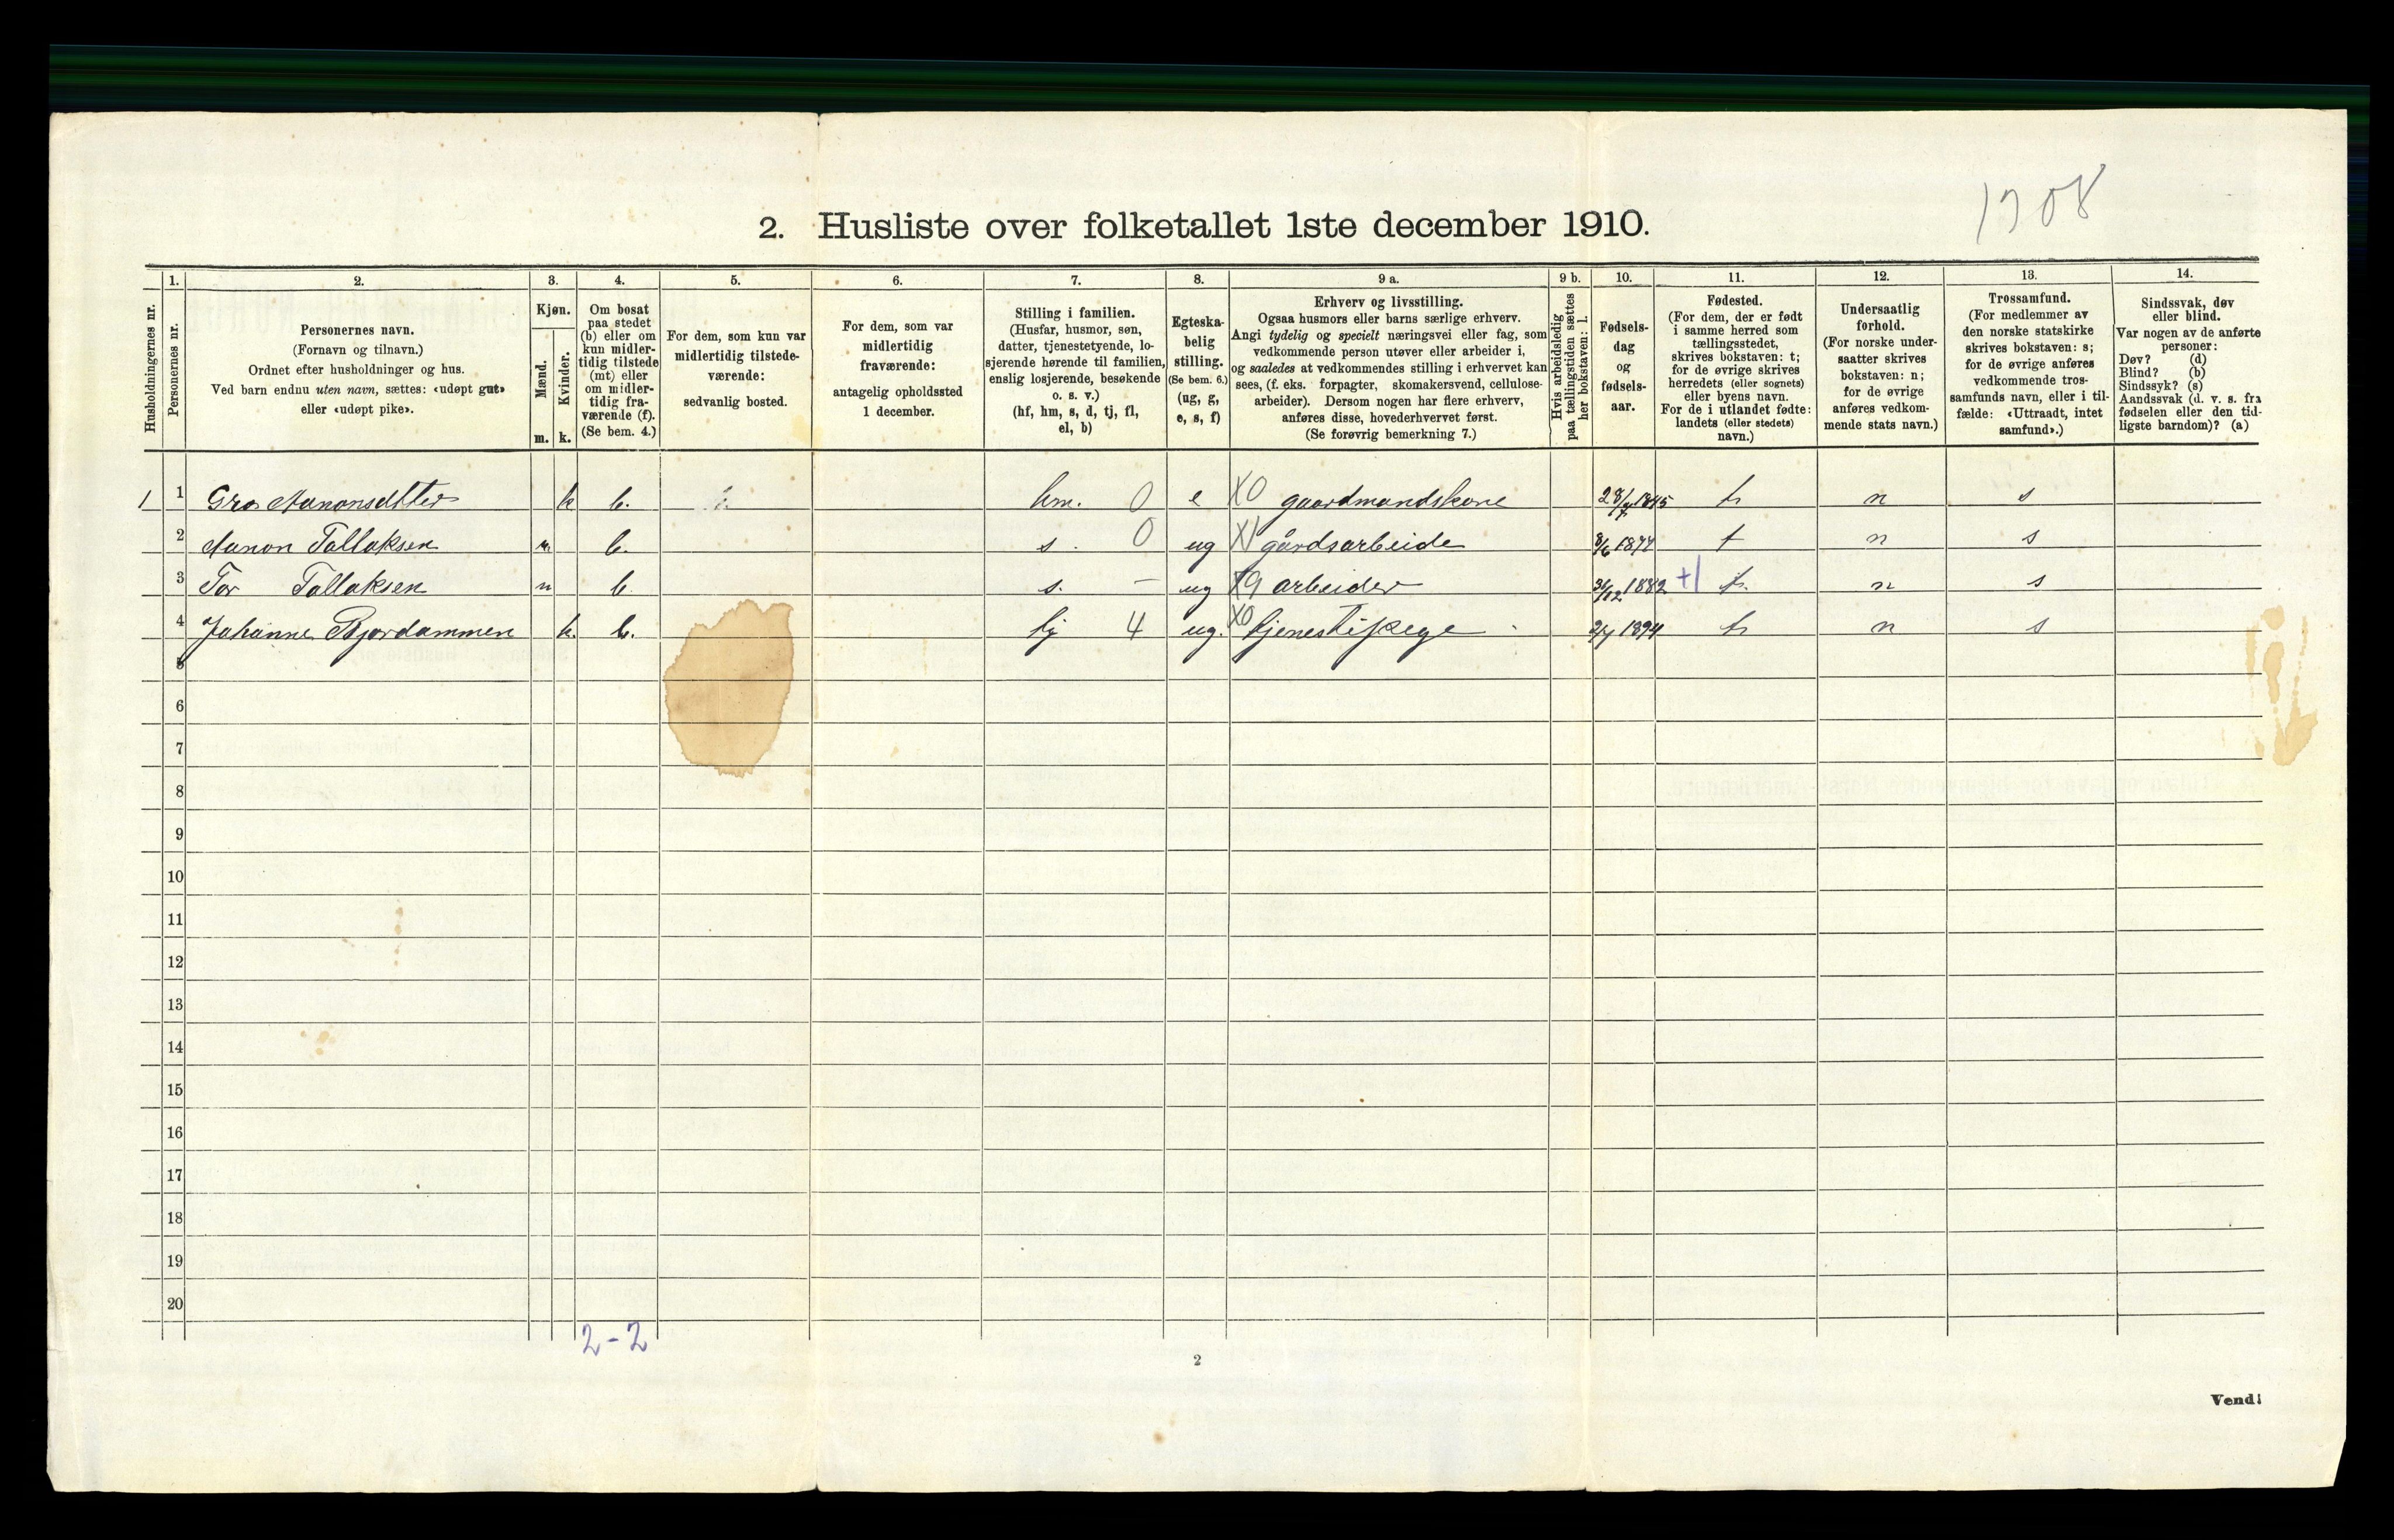 1308
2. Husliste over folketallet 1ste december 1910.
Husholdningernes nr.
1.
Personernes nr.
2.
Personernes navn.
(Fornavn og tilnavn.)
Ordnet efter husholdninger og hus.
Ved barn endnu uten navn, sættes: «udøpt gut»
eller «udøpt pike».
3.
Kjøn.
Mænd.
m.
Kvinder.
k.
4.
Om bosat
paa stedet
(b) eller om
kun midler-
tidig tilstede
(mt) eller
om midler-
tidig fra-
værende (f).
(Se bem. 4.)
5.
For dem, som kun var
midlertidig tilstede-
værende:
sedvanlig bosted.
6.
For dem, som var
midlertidig
fraværende:
antagelig opholdssted
1 december.
7.
Stilling i familien.
(Husfar, husmor, søn,
datter, tjenestetyende, lo-
sjerende hørende til familien,
enslig losjerende, besøkende
o. s. v.)
(hf, hm, s, d, tj, fl,
el, b)
8.
Egteska-
belig
stilling.
(Se bem. 6.)
(ug, g,
e, s, f)
9 a.
Erhverv og livsstilling.
Ogsaa husmors eller barns særlige erhverv.
Angi tydelig og specielt næringsvei eller fag, som
vedkommende person utøver eller arbeider i,
og saaledes at vedkommendes stilling i erhvervet kan
sees, (f. eks. forpagter, skomakersvend, cellulose-
arbeider). Dersom nogen har flere erhverv,
anføres disse, hovederhvervet først.
(Se forøvrig bemerkning 7.)
9 b.
Hvis arbeidsledig
paa tællingstiden sættes
her bokstaven: l.
10.
Fødsels-
dag
og
fødsels-
aar.
11.
Fødested.
(For dem, der er født
i samme herred som
tællingsstedet,
skrives bokstaven: t;
for de øvrige skrives
herredets (eller sognets)
eller byens navn.
For de i utlandet fødte:
landets (eller stedets)
navn.)
12.
Undersaatlig
forhold.
(For norske under-
saatter skrives
bokstaven: n;
for de øvrige
anføres vedkom-
mende stats navn.)
13.
Trossamfund.
(For medlemmer av
den norske statskirke
skrives bokstaven: s;
for de øvrige anføres
vedkommende tros-
samfunds navn, eller i til-
fælde: «Uttraadt, intet
samfund».)
14.
Sindssvak, døv
eller blind.
Var nogen av de anførte
personer:
Døv? (d)
Blind? (b)
Sindssyk? (s)
Aandssvak (d. v. s. fra
fødselen eller den tid-
ligste barndom)? (a)
1 1 Gro Aanonsdtter k b. hm. 0 e X0 gaardmandskone 1845 t n s
2 Aanon Tallaksen m b. s. 0 ug X1 gårdsarbeide 8/6 1874 t n s
3 Tor Tallaksen m b. s. – ug X9 arbeider 31/12 1882 +1 t. n s
4 Johanne Bjordammen k. b. tj 4 ug. X0 tjenestipege 1894 t n s
5
6
7
8
9
10
11
12
13
14
15
16
17
18
19
20
2-2
2
Vend!